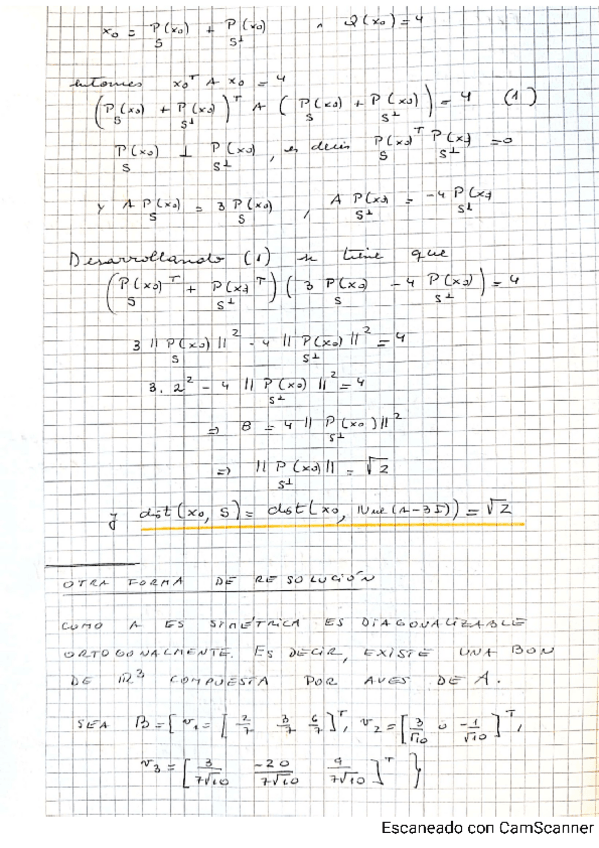 x₀ = P_S(x₀) + P_S⊥(x₀) ∧ Q(x₀) = 4
entonces x₀ᵀ A x₀ = 4
(P_S(x₀) + P_S⊥(x₀))ᵀ A (P_S(x₀) + P_S⊥(x₀)) = 4 (1)
P_S(x₀) ⊥ P_S⊥(x₀), es decir P_S(x₀)ᵀ P_S⊥(x₀) = 0
y A P_S(x₀) = 3 P_S(x₀), A P_S⊥(x₀) = -4 P_S⊥(x₀)
Desarrollando (1) se tiene que
(P_S(x₀)ᵀ + P_S⊥(x₀)ᵀ) (3 P_S(x₀) - 4 P_S⊥(x₀)) = 4
3 ||P_S(x₀)||² - 4 ||P_S⊥(x₀)||² = 4
3. 2² - 4 ||P_S⊥(x₀)||² = 4
⇒ 8 = 4 ||P_S⊥(x₀)||²
⇒ ||P_S⊥(x₀)|| = √2
y dist(x₀, S) = dist(x₀, Nul(A-3I)) = √2
OTRA FORMA DE RESOLUCIÓN
COMO A ES SIMÉTRICA ES DIAGONALIZABLE
ORTOGONALMENTE. ES DECIR, EXISTE UNA BON
DE ℝ³ COMPUESTA POR AVES DE A.
SEA B = { v₁ = [2/7 3/7 6/7]ᵀ, v₂ = [3/√10 0 -1/√10]ᵀ,
v₃ = [3/7√10 -20/7√10 9/7√10]ᵀ }
Escaneado con CamScanner